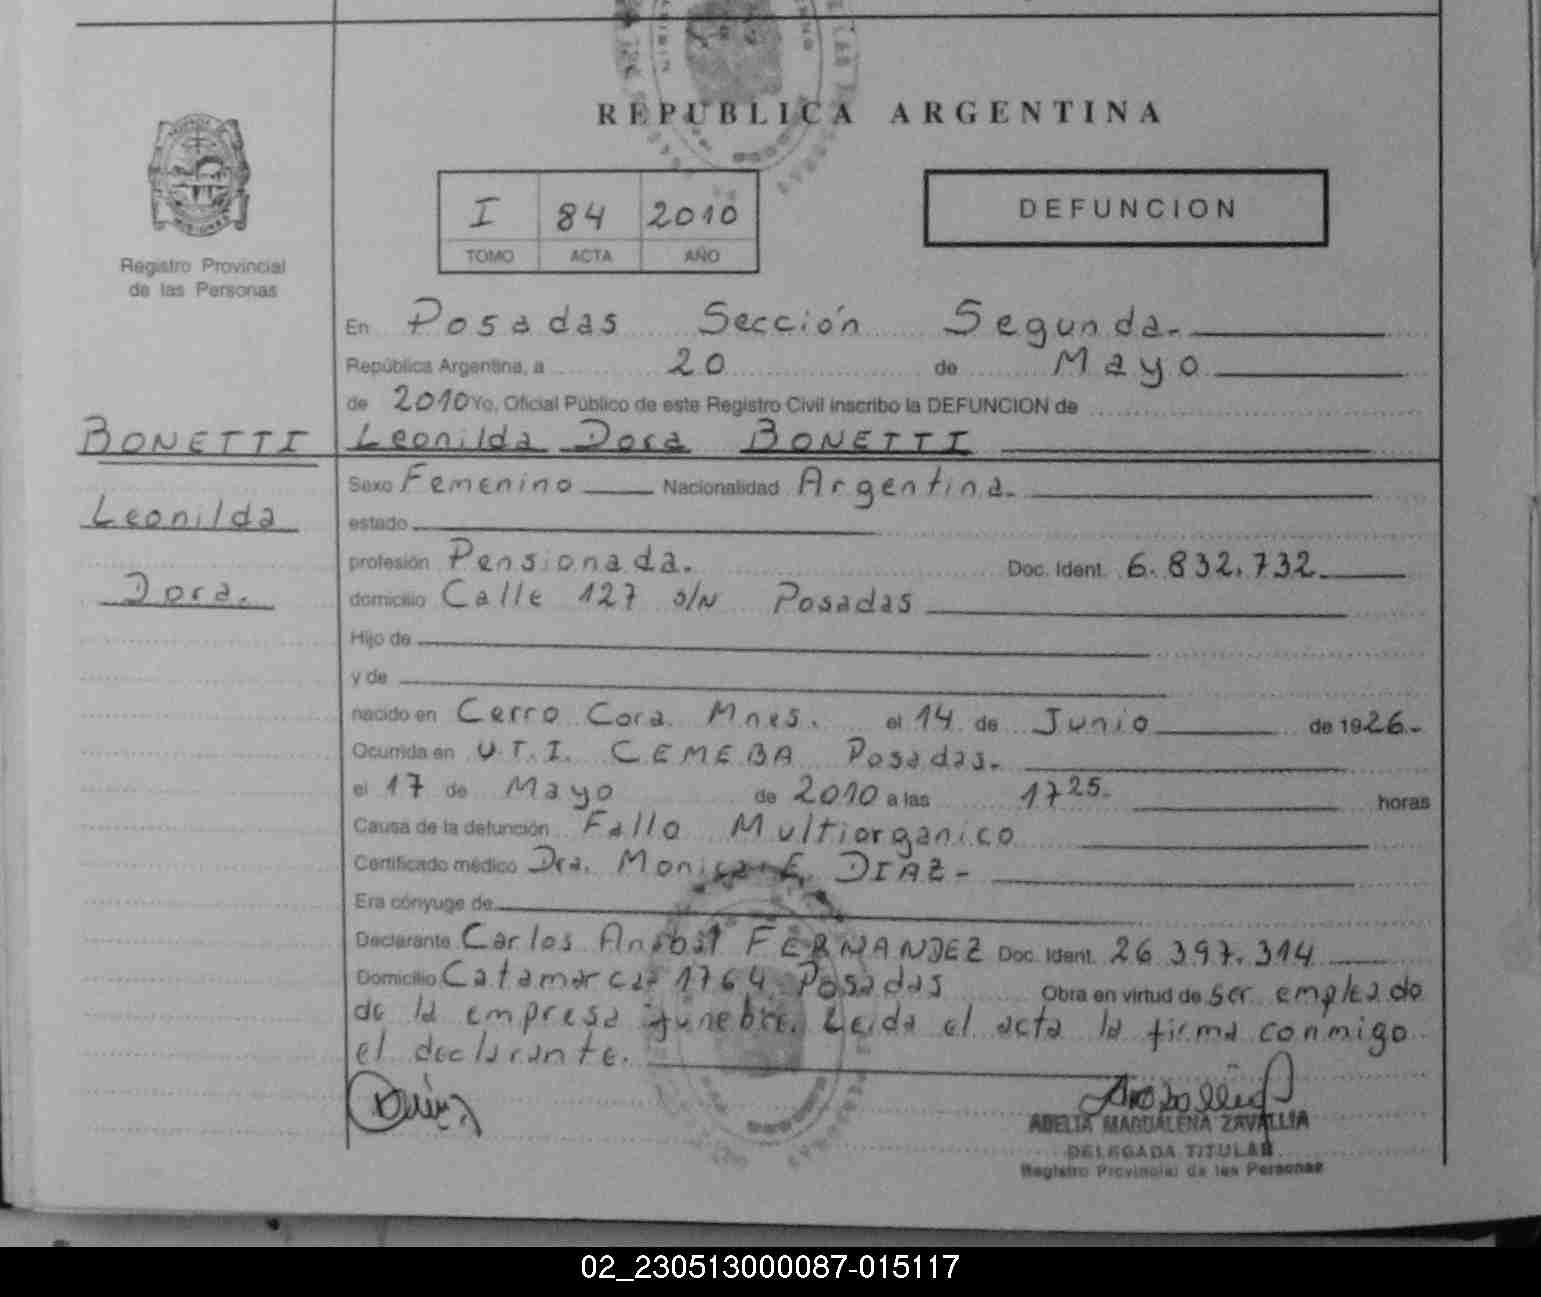 REPUBLICA ARGENTINA
Registro Provincial
de las Personas
I 84 2010
TOMO ACTA AÑO
DEFUNCION
En Posadas Sección Segunda.
República Argentina, a 20 de Mayo
de 2010 Yo, Oficial Público de este Registro Civil inscribo la DEFUNCION de
BONETTI Leonilda Dora BONETTI
Leonilda
Dora.
Sexo Femenino Nacionalidad Argentina.
estado
profesión Pensionada. Doc. Ident. 6.832.732
domicilio Calle 127 s/N Posadas
Hijo de
y de
nacido en Cerro Cora Mnes. el 14 de Junio de 1926.
Ocurrida en U.T.I. CEMEBA Posadas.
el 17 de Mayo de 2010 a las 17 25. horas
Causa de la defunción Fallo Multiorganico
Certificado médico Dra. Monica E. DIAZ-
Era cónyuge de
Declarante Carlos Anibal FERNANDEZ Doc. Ident. 26.397.314
Domicilio Catamarca 1764 Posadas Obra en virtud de ser empleado
de la empresa funebre. Leida el acta la firma conmigo
el declarante.
ADELIA MAGDALENA ZAVALLIA
DELEGADA TITULAR
Registro Provincial de las Personas
02_230513000087-015117